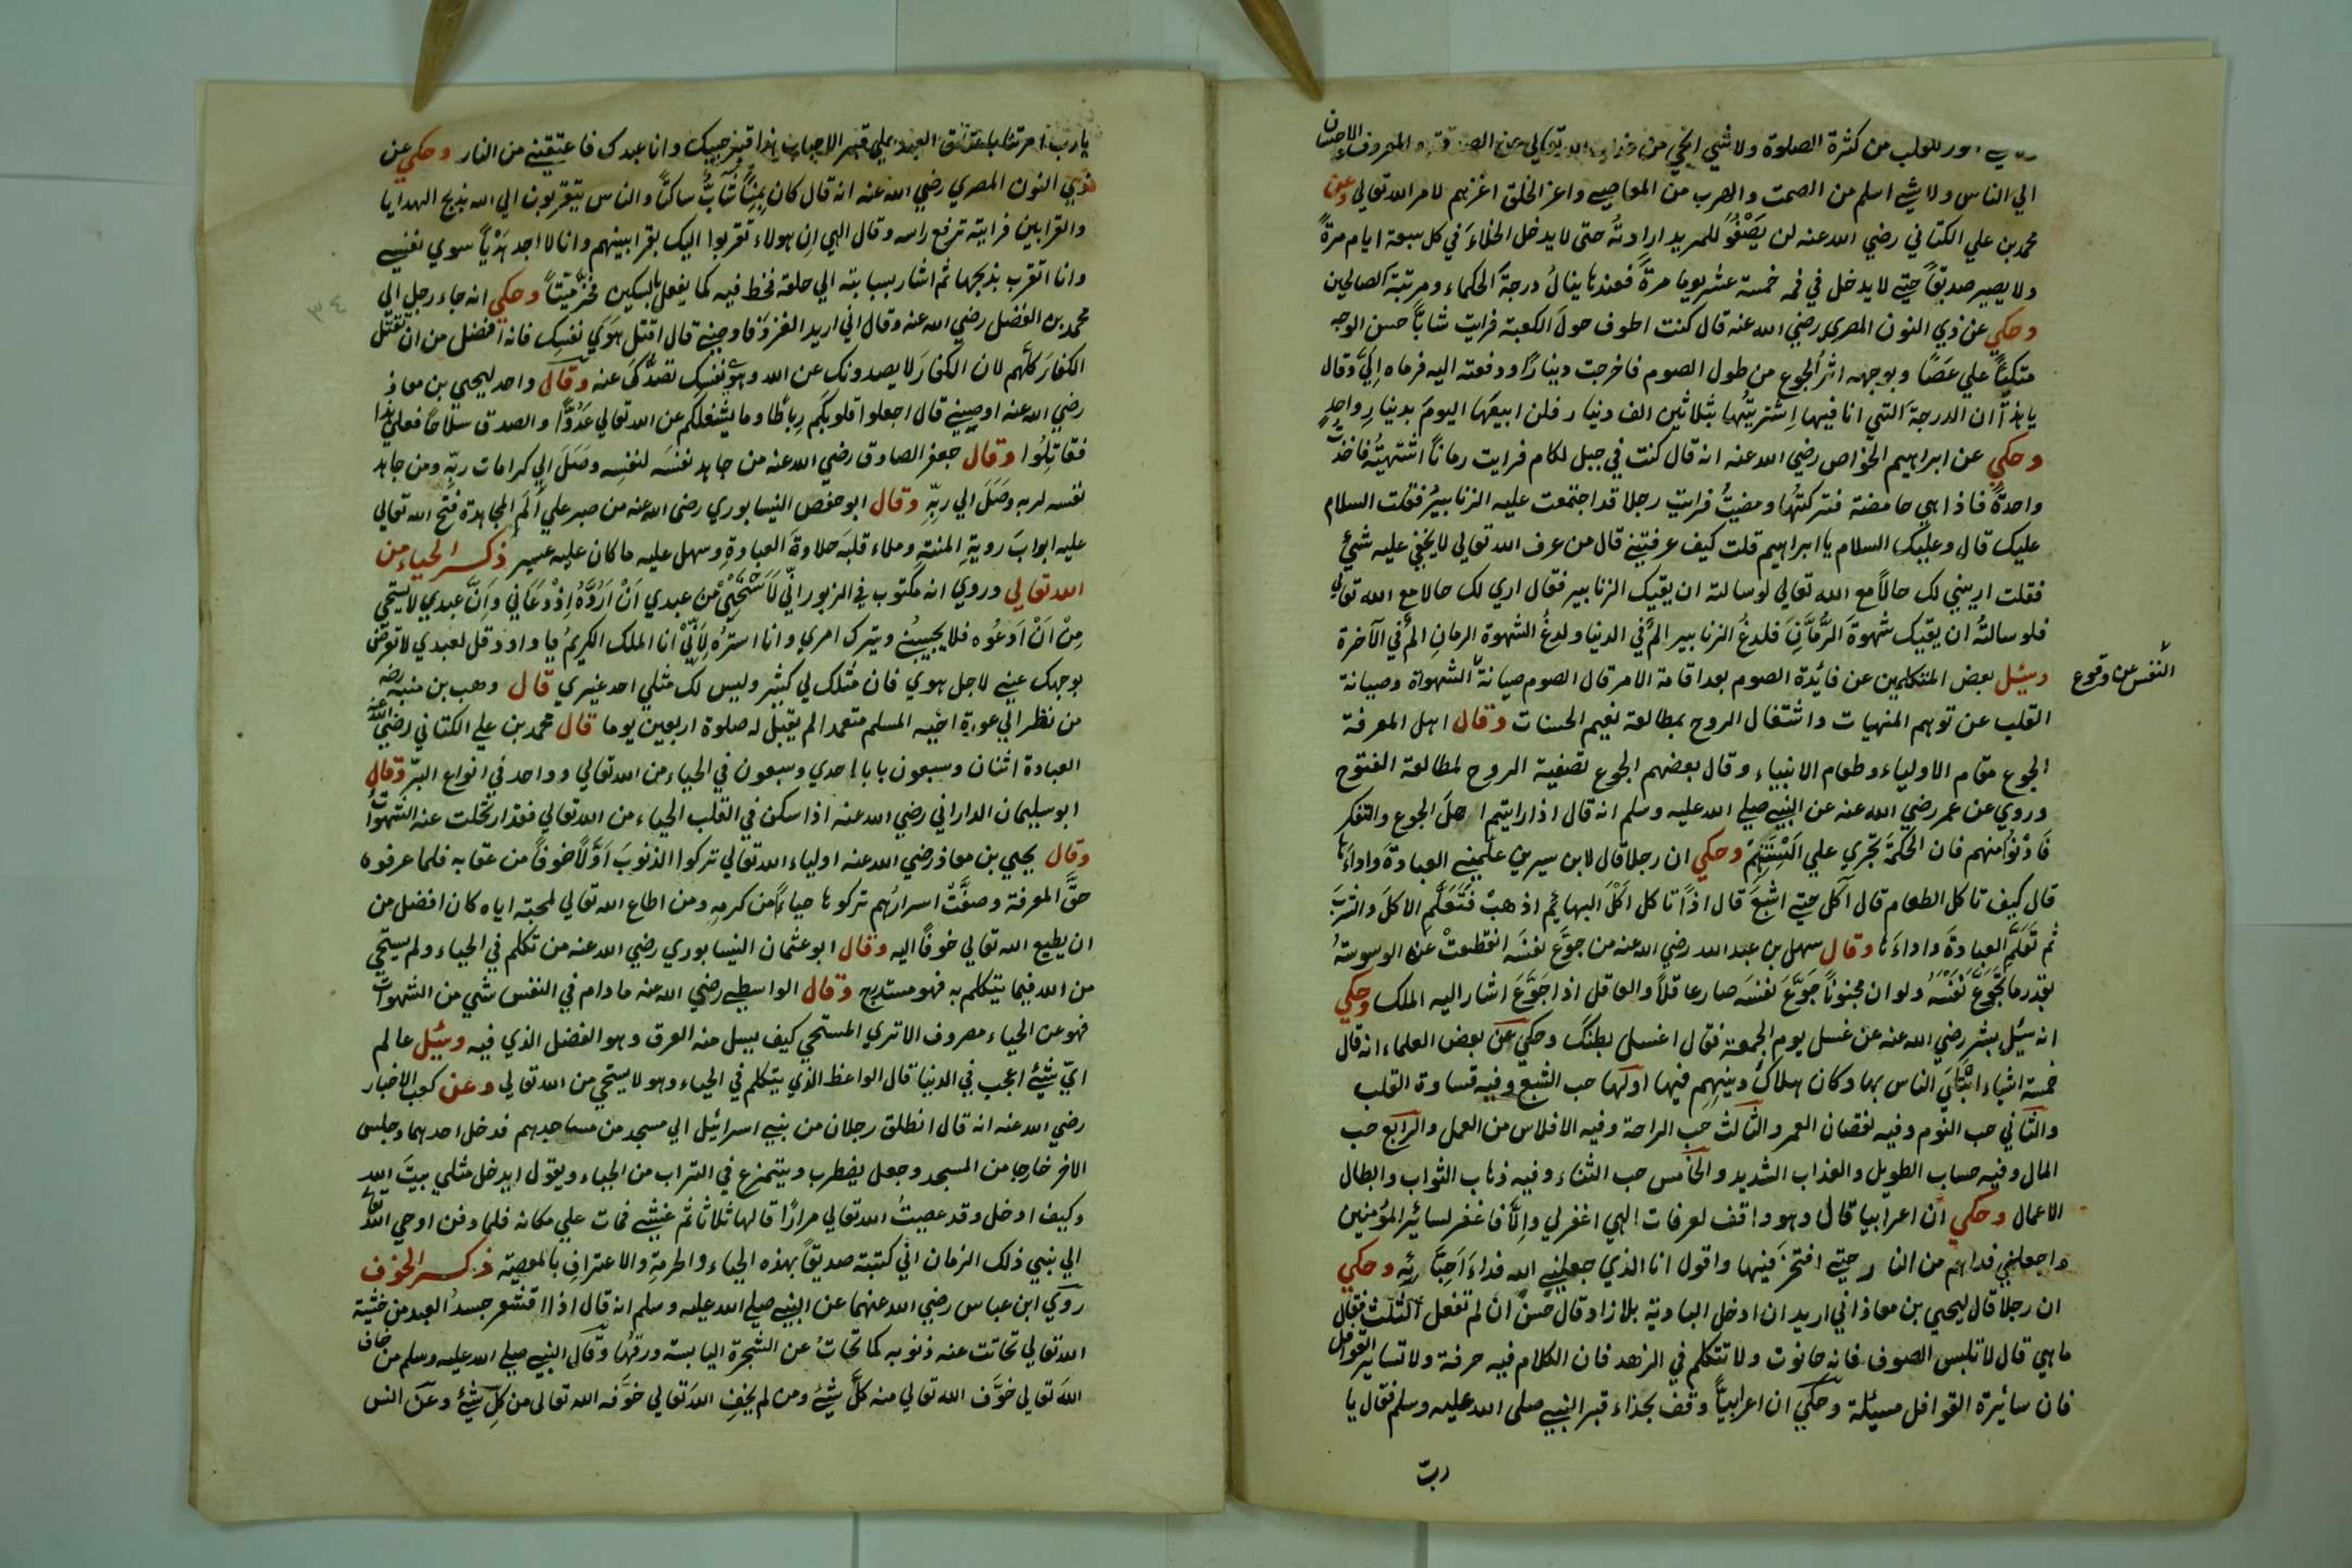 انور للقلب من كثرة الصلوة ولا شي انجي من عذاب الله تعالي من الصدقة والمعروف والاحسان
الي الناس ولا شيء اسلم من الصمت والهرب من المعاصي واعز الخلق اعزهم لامر الله تعالي وعن
محمد بن علي الكتاني رضي الله عنه لن يَصْفُوَ للمريد ارادتُه حتى لا يدخل الخلاءَ في كل سبعة ايام مرةً
ولا يصير صديقاً حتي لا يدخل في فمه خمسة عشر يوما مرةً فعندها ينالُ درجةَ الحكماء ومرتبة الصالحين
وحكي عن ذي النون المصري رضي الله عنه قال كنت اطوف حولَ الكعبة فرايت شابًّا حسن الوجه
متكيًا علي عَصًا وبوجهه اثر الجوع من طول الصوم فاخرجت دينارًا ودفعته اليه فرماه اليَّ وقال
يا هذا ان الدرجةَ التي انا فيها اِشتريتُها بثلاثين الف دينار فلن ابيعَها اليومَ بدينارٍ واحدٍ
وحكي عن ابراهيم الخواص رضي الله عنه انه قال كنت في جبل لكام فرايت رمانًا اشتهيتُه فاخذتُ
واحدةً فاذا هي حامضة فتركتُها ومضيتُ فرايت رجلا قد اجتمعت عليه الزنابيرُ فقلت السلام
عليك قال وعليك السلام يا ابراهيم قلت كيف عرفتني قال من عرف الله تعالي لا يخفي عليه شيءٌ
فقلت اريني لك حالاً مع الله تعالي لو سالته ان يقيك الزنابير فقال اري لك حالا مع الله تعالي
فلو سالتُه ان يقيك شهوةَ الرُّمَّانِ فلدغُ الزنابير المٌ في الدنيا ولدغُ الشهوة الرمانِ المٌ في الآخرة
وسُئل بعض المتكلمين عن فائدة الصوم بعد اقامة الامر قال الصوم صيانة الشهواة وصيانة
النفس عن وقوع
القلب عن توهم المنهيات واشتغال الروح بمطالعة نعيم الحسنات وقال اهل المعرفة
الجوع مقام الاولياء وطعام الانبياء وقال بعضهم الجوع تصفية الروح لمطالعة الفتوح
وروي عن عمر رضي الله عنه عن النبي صلي الله عليه وسلم انه قال اذا رايتم اهلَ الجوع والتفكر
فَادْنُوا منهم فان الحكمَةَ تجري علي اَلْسِنَتِهِمْ وحكي ان رجلا قال لابن سيرين علّمني العبادةَ وآداءَها
قال كيف تاكل الطعام قال آكل حتي اشبَعَ قال اذًا تاكل اَكْلَ البهائم اذهبْ فَتَعَلَّمِ الاكلَ والشربَ
ثم تَعَلَّمِ العبادةَ واداءَها وقال سهل بن عبد الله رضي الله عنه من جوَّع نفسَه انقطعتْ عنه الوسوسةُ
بقدر ما يُجَوِّعُ نَفْسَهُ ولو ان مجنونًا جَوَّعَ نفسَه صار عاقلاً والعاقل اذا جَوَّعَ اشار اليه الملك وحكي
انه سُئل بشر رضي الله عنه عن غسل يوم الجمعة فقال اغسل بطنَك وحكي عن بعض العلماء انه قال
خمسة اشياء ابْتُلِيَ الناس بها وكان هلاكُ دينِهِم فيها اولها حب الشبع وفيه قساوة القلب
والثاني حب النوم وفيه نقصان العمر والثالث حب الراحة وفيه الافلاس من العمل والرابع حب
المال وفيه حساب الطويل والعذاب الشديد والخامس حب الثناء وفيه ذهاب الثواب وابطال
الاعمال وحكي ان اعرابيا قال وهو واقف لعرفات الهي اغفر لي والّا فاغفر لسائر المؤمنين
واجعلني فداهم من النار حتي افتخرَ فيها واقول انا الذي جعلني الله فداءَ اَحِبَّائِه وحكي
ان رجلا قال ليحيي بن معاذ اني اريد ان ادخل البادية بلا زاد وقال حَسنٌ ان لم تفعل الثلث فقال
ما هي قال لا تلبس الصوف فانه حانوت ولا تتكلم في الزهد فان الكلام فيه حرفة ولا تساير القوافل
فان سائرة القوافل مسئلة وحكي ان اعرابيًّا وقف بحذاء قبر النبي صلى الله عليه وسلم فقال يا
ربّ
يا رب امرتنا باعتاق العبيد علي قبر الاحباب هذا قبر حبيبك وانا عبدك فاعتقني من النار وحكي عن
ذي النون المصري رضي الله عنه انه قال كان بِمِنًا شابٌّ ساكنًا والناس يتقربون الي الله بذبح الهدايا
والقرابين فرايته ترفع راسه وقال الهي اِن هولاء تقربوا اليك بقرابينهم وانا لا اجد هَدْيًا سوي نفسي
وانا اتقرب بذبحها ثم اشار بسبابته الي حلقه فخط فيه كما يفعل بالسكين فخرّ ميّتًا وحكي انه جاء رجل الي
٣٤
محمد بن الفضل رضي الله عنه وقال اني اريد الغزوَ فاوصني قال اقتل هَوَي نفسِك فانه افضل من ان تقتل
الكفارَ كلّهم لان الكفارَ لا يصدونك عن الله وهوي نفسِك تصدُّكَ عنه وقال واحد ليحيي بن معاذ
رضي الله عنه اوصيني قال اجعلوا قلوبكم رِباطًا وما يشغلكم عن الله تعالي عَدُوًّا والصدق سلاحًا فعلي هذا
فقاتِلُوا وقال جعفر الصادق رضي الله عنه من جاهد نفسَه لنفسِه وصَلَ الي كرامات ربِّه ومن جاهد
نفسه لربه وصَلَ الي ربِّهِ وقال ابو حفص النيسابوري رضي الله عنه من صبر علي اَلَمِ المجاهدة فتح الله تعالي
عليه ابوابَ رويةِ المنةِ وملاء قلبَه حلاوةَ العبادةِ وسهل عليه ما كان عليه عسير ذكر الحياء من
الله تعالي وروي انه مكتوب في الزبور اِنّي لَاَسْتَحْيِيْ مِنْ عبدي اَنْ اَرُدَّهُ اِذْ دَعَانِي وَاِنَّ عبدي لا يستحي
مِنْ اَنْ اَدعُوه فلا يجيبُنِي ويترك امري وانا استرُه لِاَنِّيْ انا الملك الكريمُ يا داود قل لعبدي لا تعرض
بوجهك عني لاجل هوي فان مثلك لي كثير وليس لك مثلي احد غيري قال وهب بن منبه رضه
من نظر الي عورة اخيه المسلم متعمدا لم يقبل له صلوة اربعين يوما قال محمد بن علي الكتاني رضي الله عنه
العبادة اثنان وسبعون بابا احدي وسبعون في الحياء من الله تعالي وواحد في انواع البرّ وقال
ابو سليمان الداراني رضي الله عنه اذا سكن في القلب الحياء من الله تعالي فقد ارتحلت عنه الشهواتُ
وقال يحيي بن معاذ رضي الله عنه اولياء الله تعالي تركوا الذنوبَ اَوَّلًا خوفًا من عقابه فلما عرفوه
حقَّ المعرفة وصفَّتْ اسرارُهم تركوها حياءً من كرمِه ومن اطاع الله تعالي لمحبته اياه كان افضل من
ان يطيع الله تعالي خوفًا اليه وقال ابو عثمان النيسابوري رضي الله عنه من تكلم في الحياء ولم يستحي
من الله فيما يتكلم به فهو مستدرج وقال الواسطي رضي الله عنه ما دام في النفس شي من الشهوات
فهو عن الحياء مصروف الا تري المستحي كيف يسيل منه العرق وهو الفضل الذي فيه وسُئل عالم
ايّ شيءٍ اعجب في الدنيا قال الواعظ الذي يتكلم في الحياء وهو لا يستحي من الله تعالي وعن كعب الاخبار
رضي الله عنه انه قال انطلق رجلان من بني اسرائيل الي مسجد من مساجدهم فدخل احدهما وجلس
الاخر خارجا من المسجد وجعل يضطرب ويتمزع في التراب من الحياء ويقول ايدخل مثلي بيتَ الله
وكيف ادخل وقد عصيتُ الله تعالي مرارًا قالها ثلاثا ثم غشي فمات علي مكانه فلما دفن اوحي الله تعالي
الي نبي ذلك الزمان اني كتبته صديقًا بهذه الحياء والحرمةِ والاعترافِ بالمعصية ذكر الخوف
روي ابن عباس رضي الله عنهما عن النبي صلي الله عليه وسلم انه قال اذا اقشعر جسدُ العبد من خشية
الله تعالي تحاتت عنه ذنوبه كما تحاتُ عن الشجرة اليابسة ورقُها وقال النبي صلي الله عليه وسلم من خاف
اللهَ تعالي خوَّف الله تعالي منه كلَّ شيءٍ ومن لم يخفِ اللهَ تعالي خوَّفه الله تعالى من كلِّ شيءٍ وعن انس